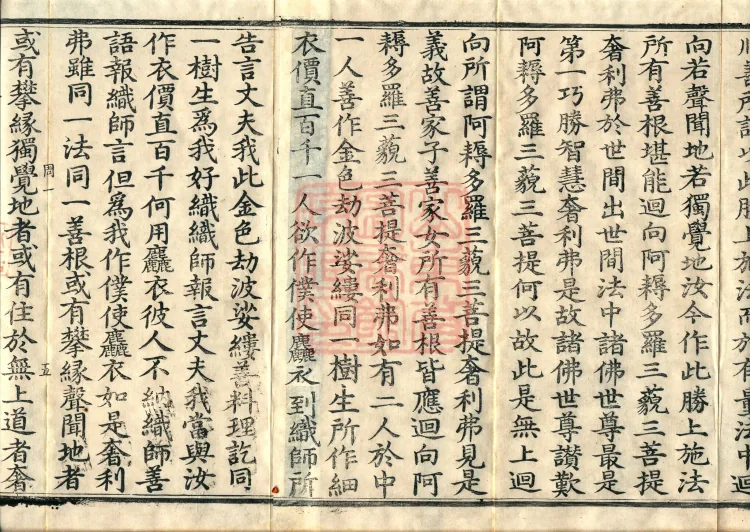 順善所説以此勝上施法而於有量法中迴
向若聲聞地若獨覺地汝今作此勝上施法
所有善根堪能迴向阿耨多羅三藐三菩提
奢利弗於世間出世間法中諸佛世尊最是
第一巧勝智慧奢利弗是故諸佛世尊讚歎
阿耨多羅三藐三菩提何以故此是無上迴
向所謂阿耨多羅三藐三菩提奢利弗見是
義故善家子善家女所有善根皆應迴向阿
耨多羅三藐三菩提奢利弗如有二人於中
一人善作金色劫波娑縷同一樹生所作細
衣價直百千一人欲作僕使麤衣到織師所
告言丈夫我此金色劫波娑縷善料理訖同
一樹生爲我好織織師報言丈夫我當與汝
作衣價直百千何用麤衣彼人不納織師善
語報織師言但爲我作僕使麤衣如是奢利
弗雖同一法同一善根或有攀緣聲聞地者
罔一
五
或有攀緣獨覺地者或有住於無上道者奢